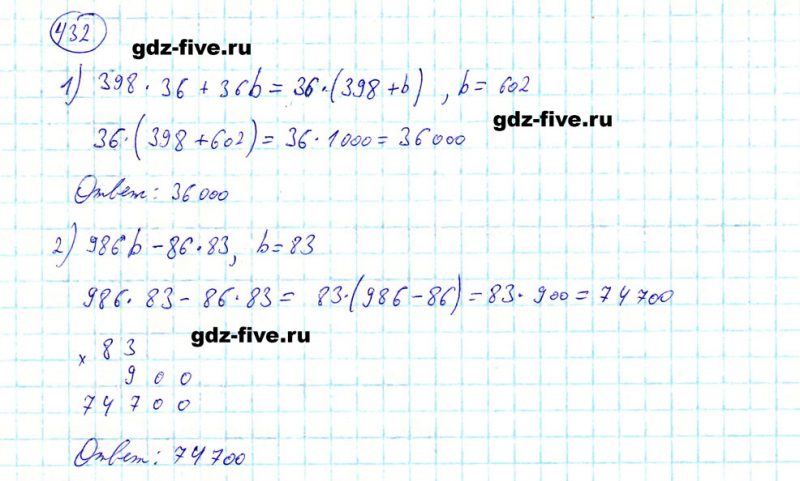 432
gdz-five.ru
1) 398 · 36 + 36b = 36 · (398 + b) , b = 602
gdz-five.ru
36 · (398 + 602) = 36 · 1000 = 36000
Ответ: 36000
2) 986b - 86 · 83, b = 83
986 · 83 - 86 · 83 = 83 · (986 - 86) = 83 · 900 = 74700
gdz-five.ru
x 83
900
74700
Ответ: 74700